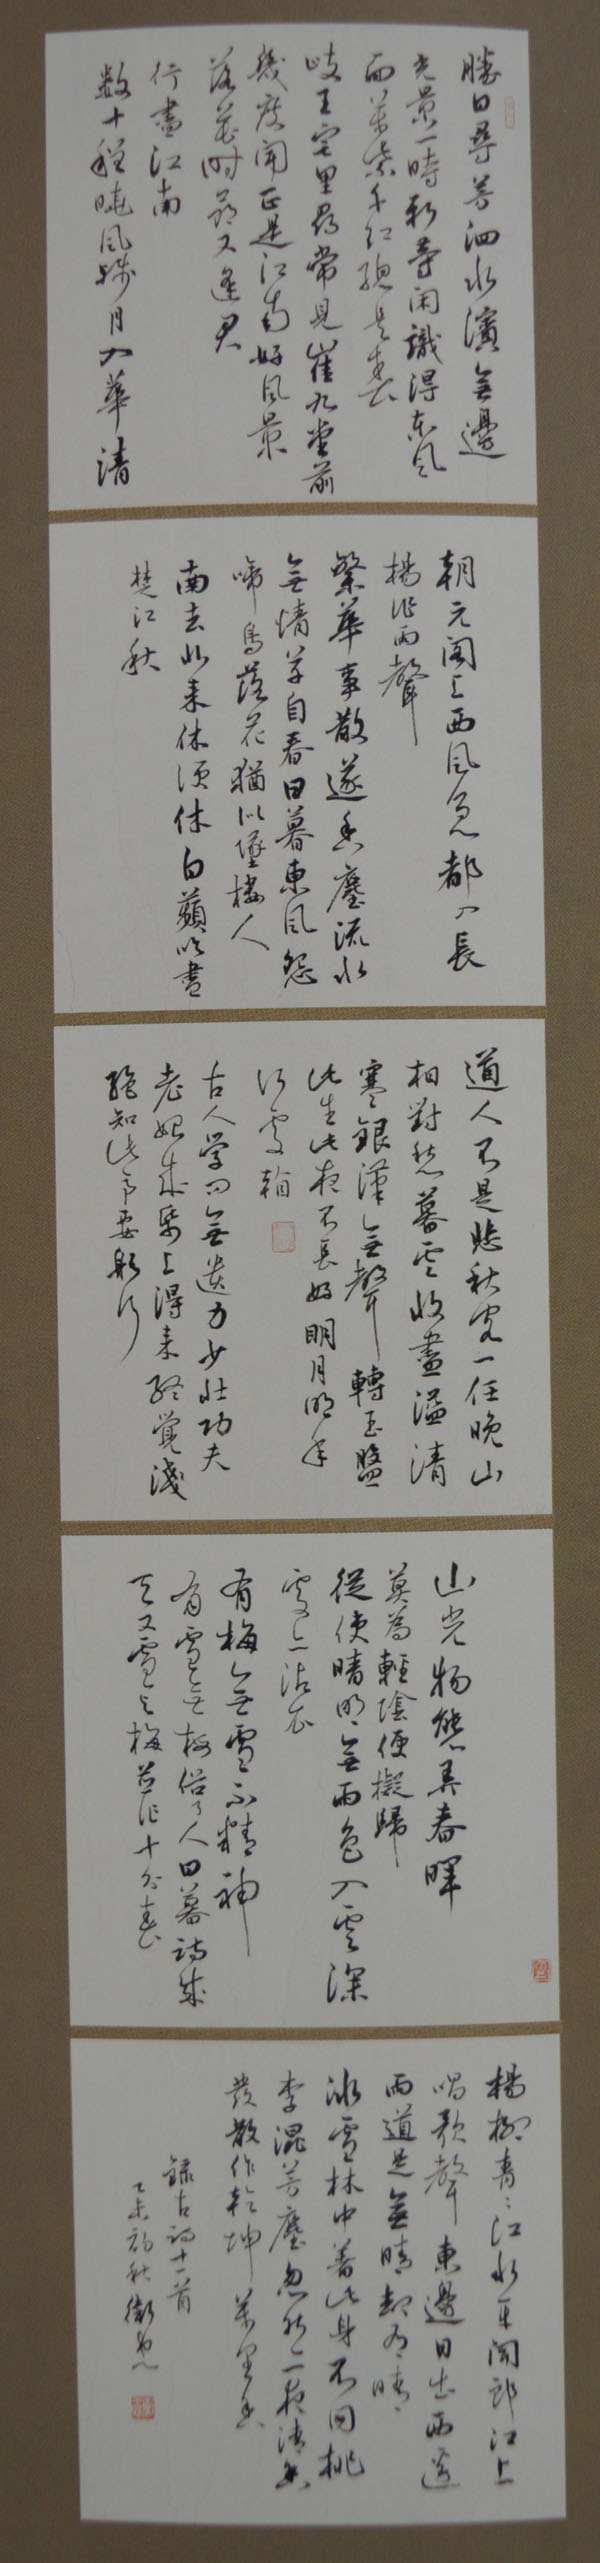 勝日尋芳泗水濱無邊
光景一時新等閑識得東風
面萬紫千紅總是春
岐王宅里尋常見崔九堂前
幾度聞正是江南好風景
落花時節又逢君
行盡江南
数十程曉風殘月入華清
朝元閣上西風急都入長
楊作雨聲
繁華事散逐香塵流水
無情草自春日暮東風怨
啼鳥落花猶似墜樓人
南去北來休便休白蘋吹盡
楚江秋
道人不是悲秋客一任晚山
相對愁暮雲收盡溢清
寒銀漢無聲轉玉盤
此生此夜不長好明月明年
何處看
古人学問無遺力少壯功夫
老始成紙上得来終覺淺
絕知此事要躬行
山光物態弄春暉
莫為輕陰便擬歸
從使晴明無雨色入雲深
處亦沾衣
有梅無雪不精神
有雪無梅俗了人日暮詩成
天又雪與梅並作十分春
楊柳青〻江水平聞郎江上
唱歌聲東邊日出西邊
雨道是無晴卻有晴
冰雪林中著此身不同桃
李混芳塵忽然一夜清香
發散作乾坤萬里春
錄古詩十一首
乙未初秋